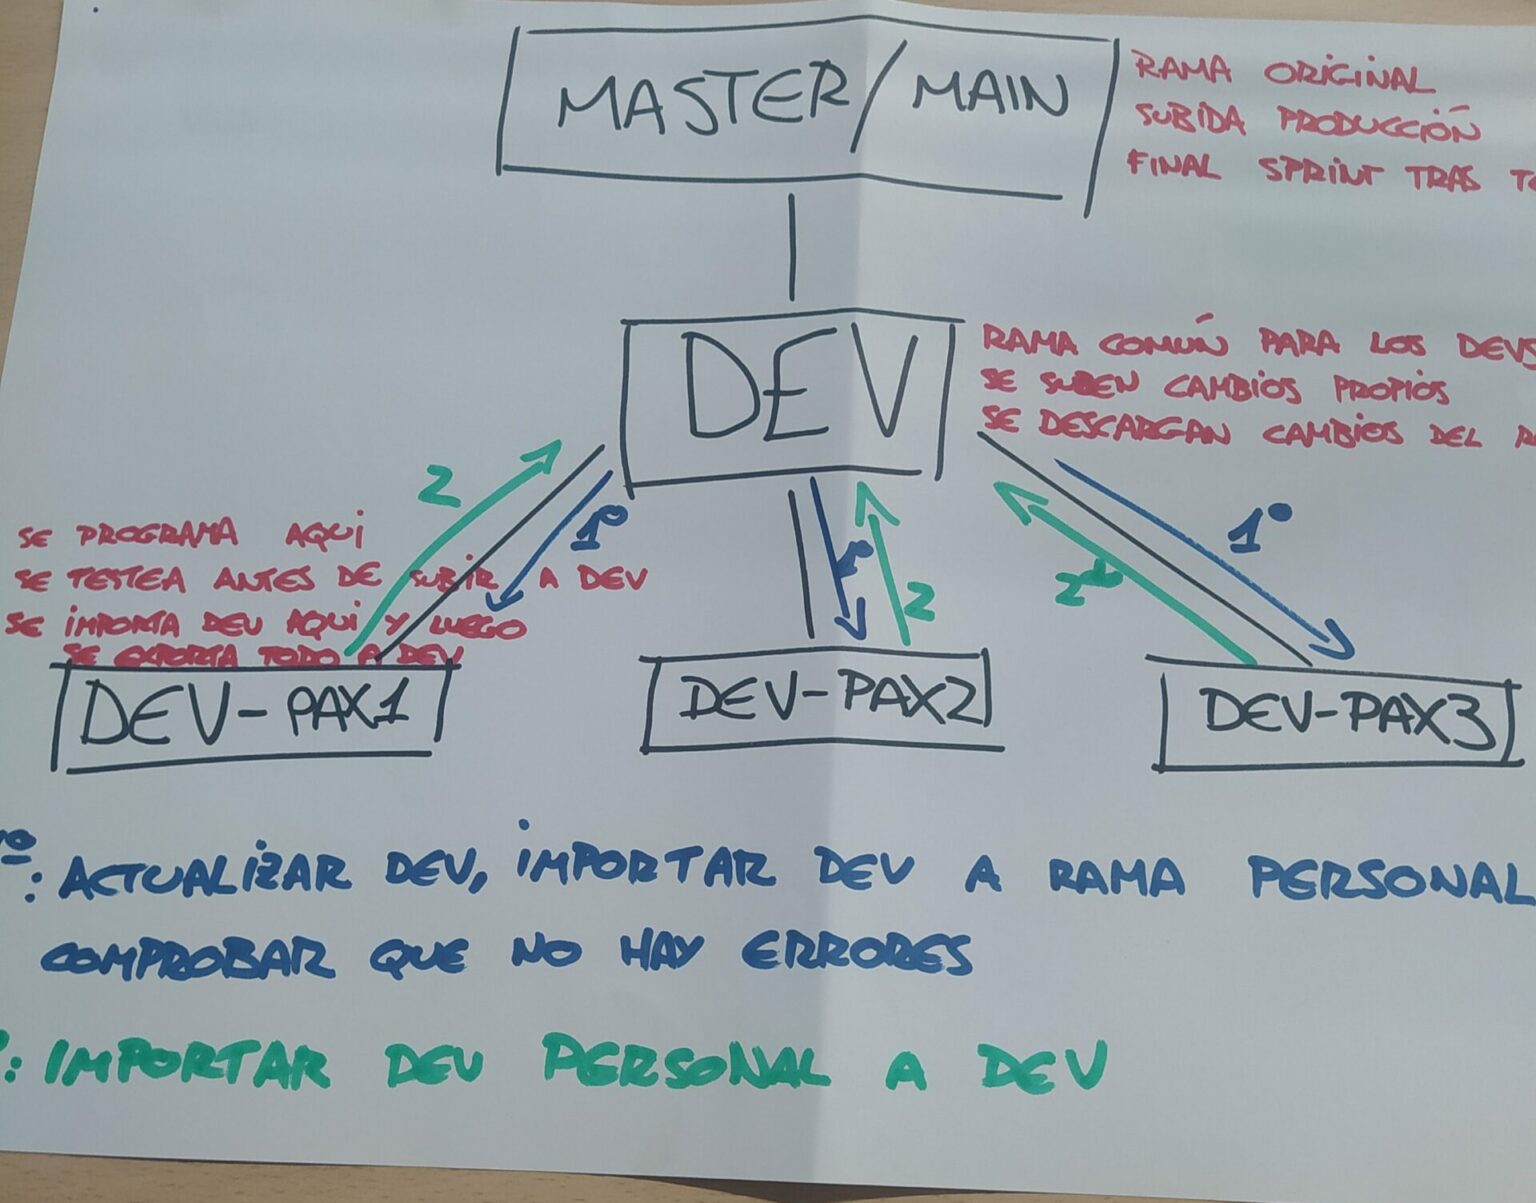 MASTER/MAIN
RAMA ORIGINAL
SUBIDA PRODUCCIÓN
FINAL SPRINT TRAS
DEV
RAMA COMÚN PARA LOS DEVS
SE SUBEN CAMBIOS PROPIOS
SE DESCARGAN CAMBIOS DEL
2
1º
1º
2
1º
2º
SE PROGRAMA AQUI
SE TESTEA ANTES DE SUBIR A DEV
SE IMPORTA DEV AQUI Y LUEGO
SE EXPORTA TODO A DEV
DEV-PAX1
DEV-PAX2
DEV-PAX3
1º: ACTUALIZAR DEV, IMPORTAR DEV A RAMA PERSONAL
COMPROBAR QUE NO HAY ERRORES
: IMPORTAR DEV PERSONAL A DEV